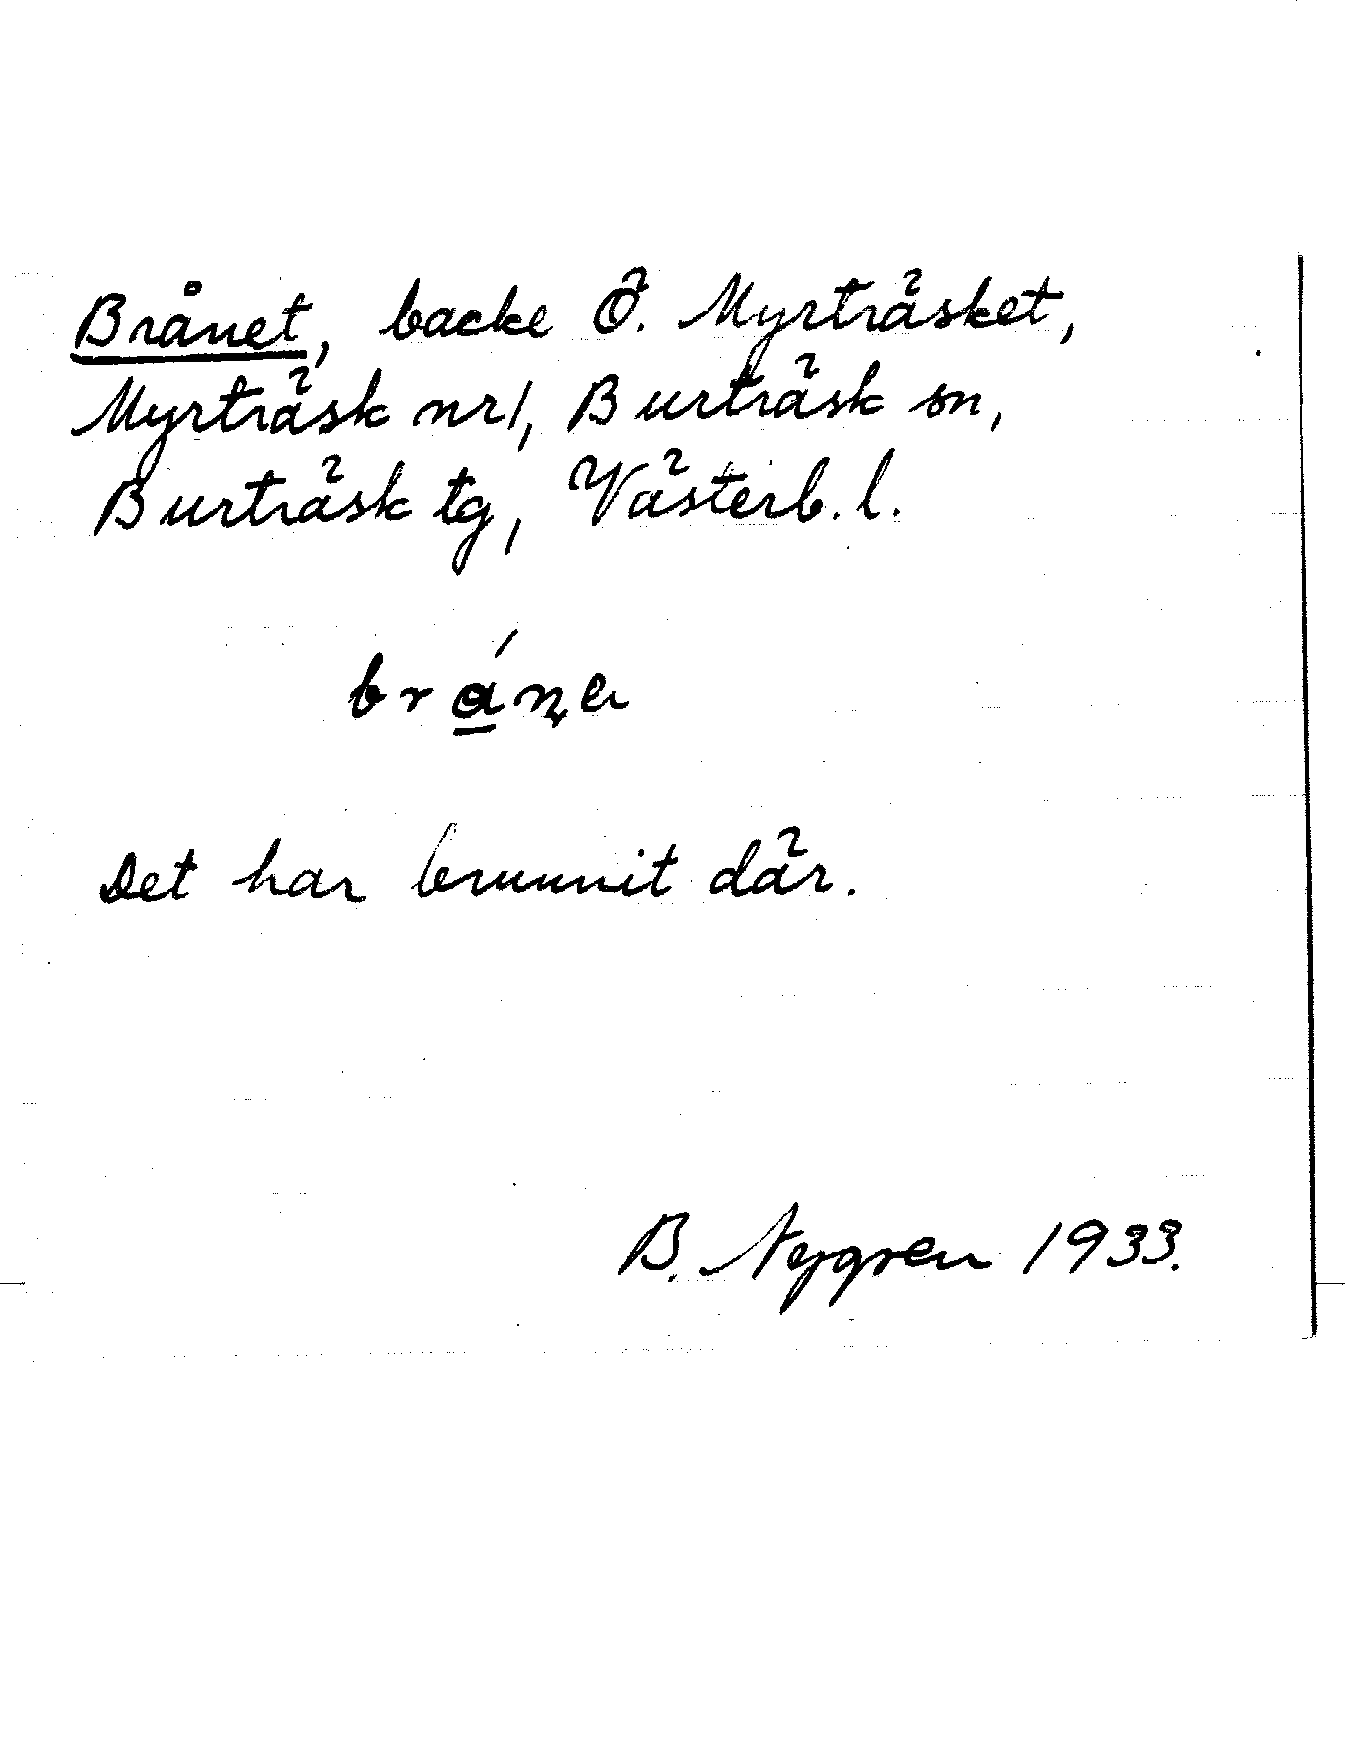 Brånet, backe Ö. Myrträsket,
Myrträsk nr 1, Burträsk sn,
Burträsk tg, Västerb. l.
Det har brunnit där.
B. Nygren 1933.